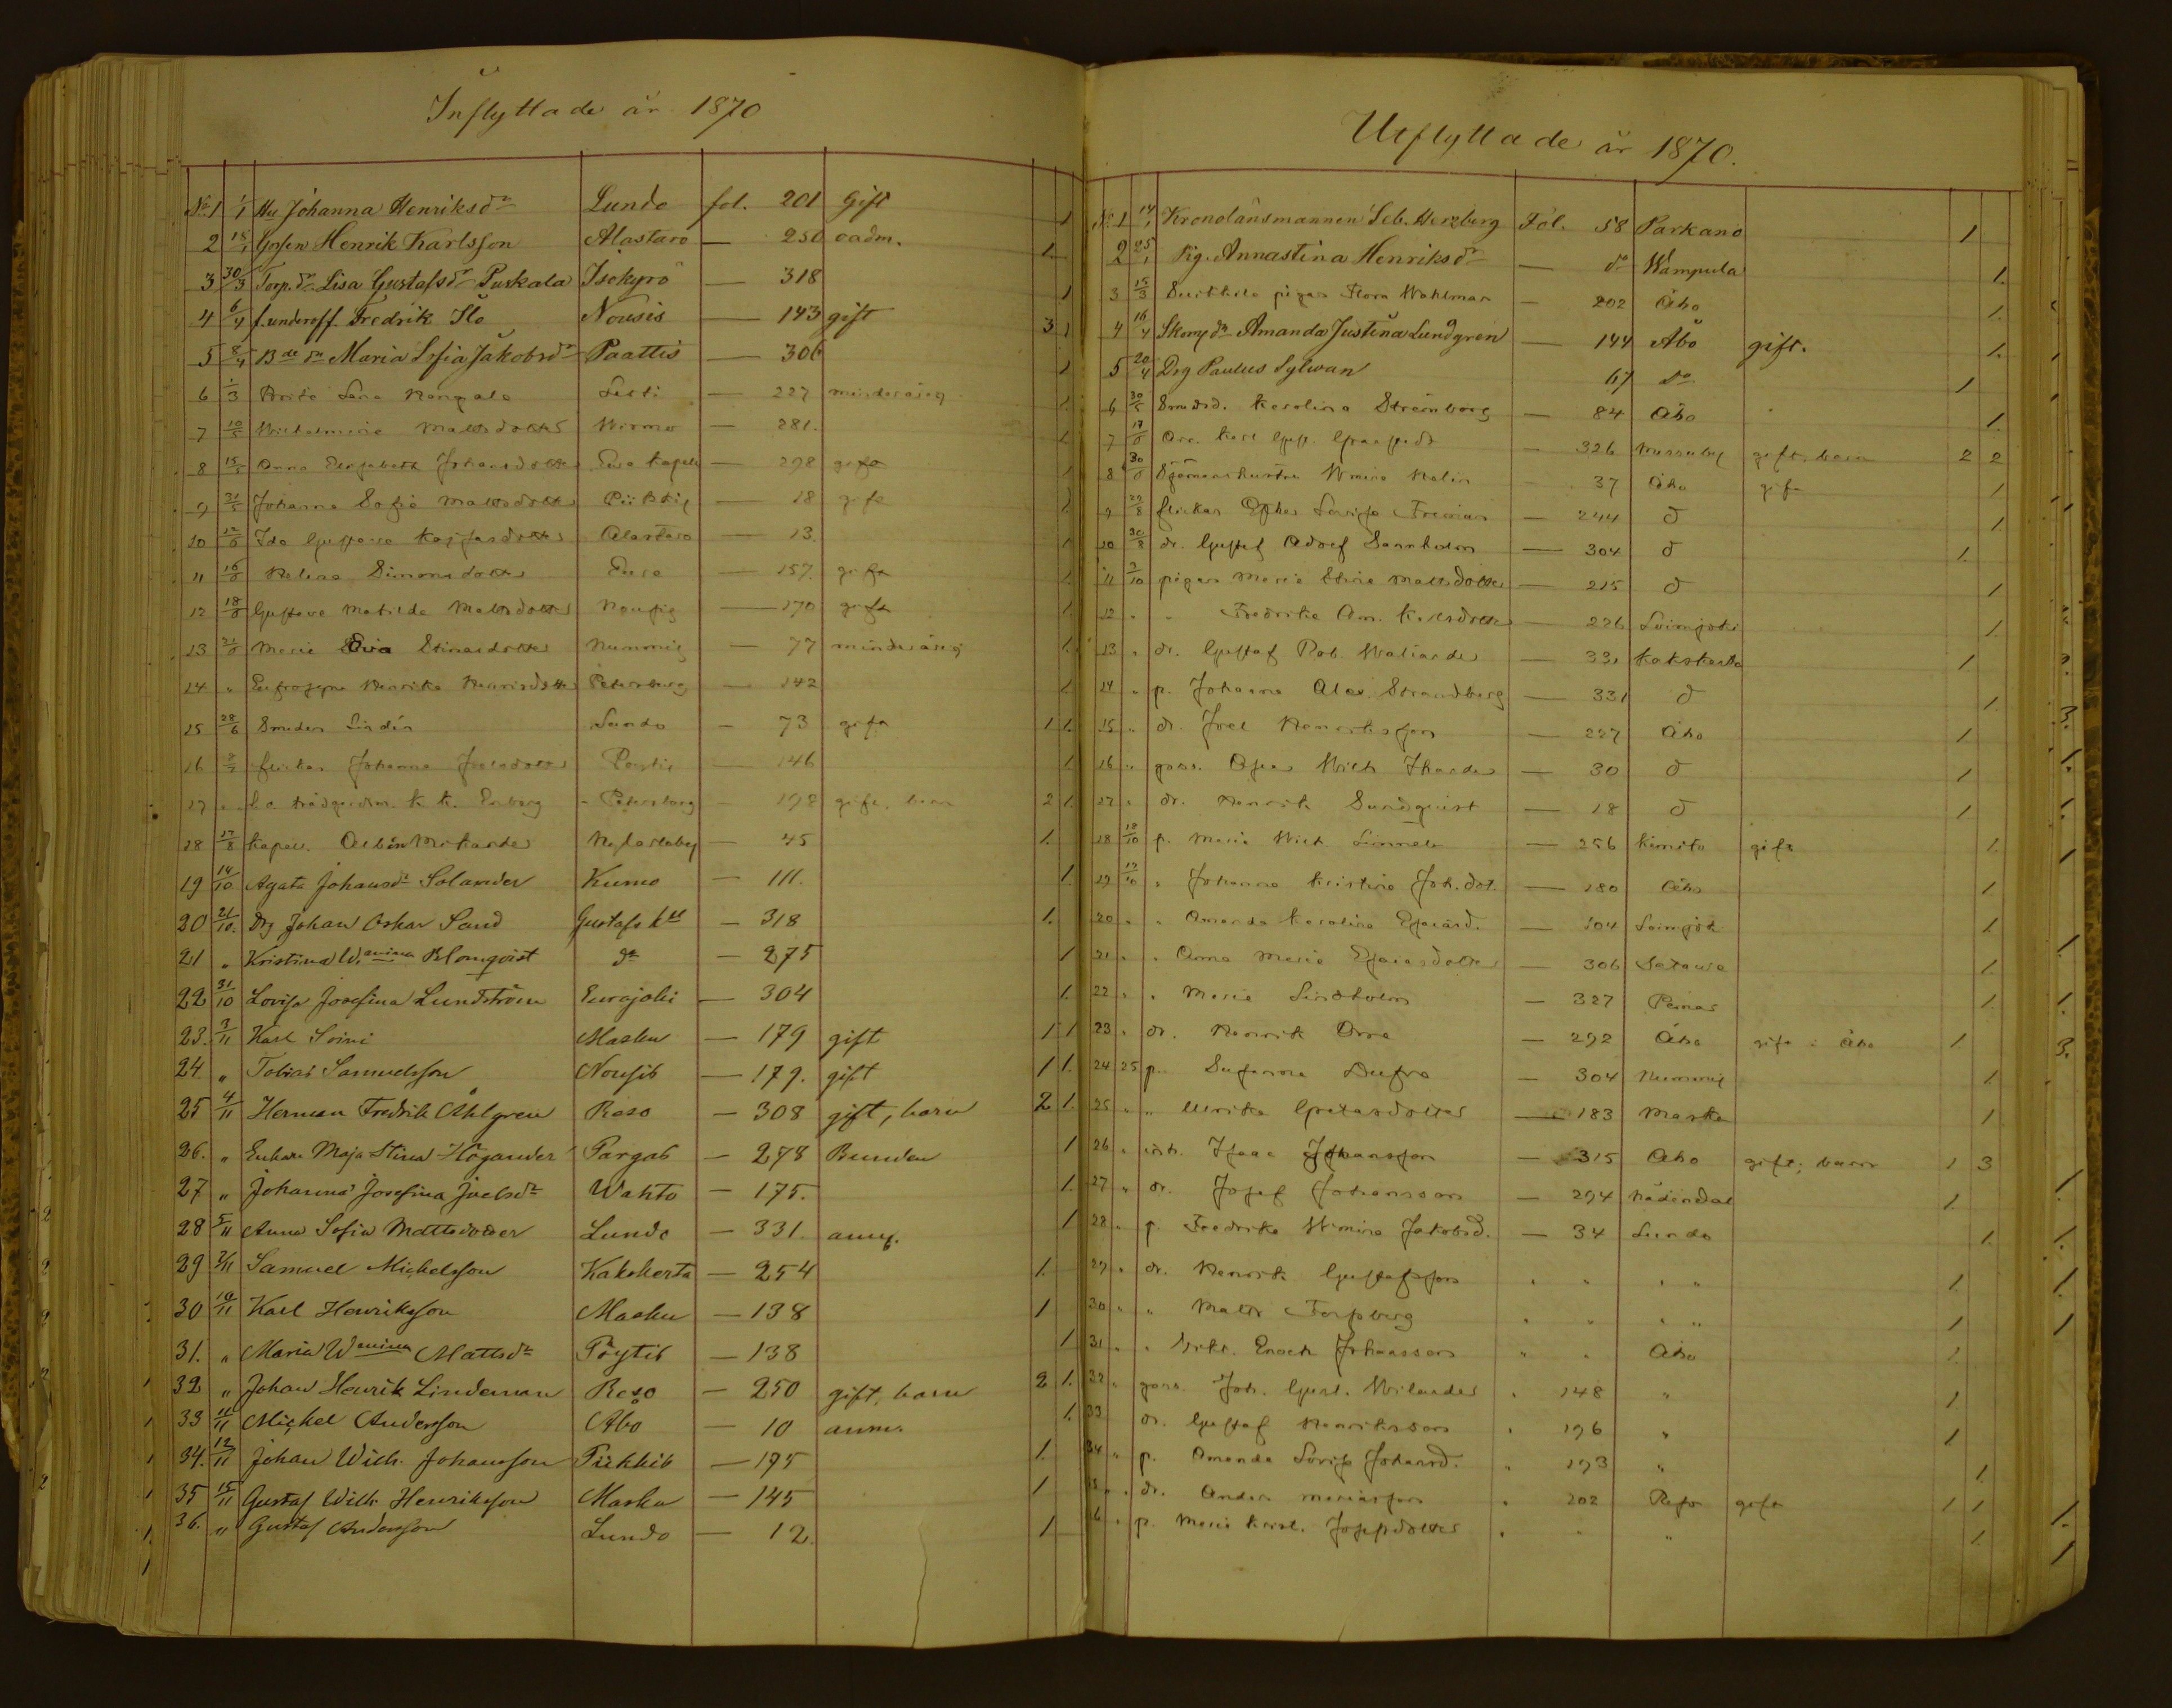 Inflyttade år 1870
No 1 1/1 Hu Johanna Henriksdr Lundo fol. 201 Gift 1
2 18/1 Gossen Henrik Karlsson Alastaro — 250 oadm. 1.
3 30/3 Torp.dr Lisa Gustafsdr Puskala Isokyrö — 318 1
4 6/4 f. underoff. Fredrik Ilo Nousis — 143 gift 3 1
5 8/4 Bde dr Maria Sofia Jakobsdr Paattis — 306 1
6 1/3 Lena — 227 minderårig 1.
7 10/5 Wilhelmina Mattsdotter Wirmo — 281. 1.
8 15/5 Anna Elisabeth Johansdotter Eura kapell — 298 gift 1
9 31/5 Johanna Sofia Mattsdotter — 18 gift 1
10 Ida Gustava Kajsasdotter Alastaro — 13. 1
11 16/6 Helena Simonsdotter Eura — 157. gift 1
12 18/6 Gustava Matilda Mattsdotter Nousis — 170 gift 1.
13 21/6 Maria Eva Stinasdotter Nummis — 77 minderårig 1.
14 " Eufrosyne Henrika Henriksdotter Petersburg — 142 1
15 28/6 Smeden Lindén Lundo — 73 gift 1 1.
16 flickan Johanna Joelsdotter Pöytis — 146 1.
17 " K. K. Enberg Petersburg — 198 gift, barn 2 1.
18 17/8 Kapell. Albin Nykarleby — 45 1.
19 14/10 Agata Johansdr Solander Kumo — 111. 1.
20 21/10. Drg Johan Oskar Sand Gustafs — 318 1.
21 " Kristina Wmina Blomqvist do — 275 1
22 31/10 Lovisa Josefina Lundström Eurajoki — 304 1.
23. 3/11 Karl Soini Masku — 179 gift 1 1
24. " Tobias Samuelsson Nousis — 179. gift 1 1.
25 4/11 Herman Fredrik Åhlgren Reso — 308 gift, barn 2 1.
26. " Enkan Maja Stina Högander Pargas — 278 Bunden 1
27 " Johanna Josefina Joelsdr Wahto — 175. 1.
28 5/11 Anna Sofia Mattsdotter Lundo — 331. anm. 1
29 7/11 Samuel Mickelsson Kakskerta — 254 1.
30 10/11 Karl Henriksson Masku — 138 1
31. " Maria Wmina Mattsdr Pöytis — 138 1
32 " Johan Henrik Lindeman Reso — 250 gift, barn 2 1.
33 11/11 Mickel Andersson Åbo — 10 anm. 1.
34. 12/11 Johan Wilh. Johansson Piikkis — 195 1.
35 15/11 Gustaf Wilh. Henriksson Masku — 145 1
36. " Gustaf Andersson Lundo — 12. 1
Utflyttade år 1870.
No 1 14/1 Kronolänsmannen Seb. Herzberg Fol. 58 Parkano 1
2 25/1 Pig. Annastina Henriksdr — do Wampula 1.
3 15/3 pigan Flora Wahlman — 202 Åbo 1.
4 16/4 Skom dr Amanda Justina Lundgren — 144 Åbo gift. 1.
5 20/4 Drg Paulus Sylwan 67 do 1
6 30/5 Smedsd. Karolina Strömberg — 84 Åbo 1.
7 17/6 Karl Gust. — 326 gift, barn 2 2
8 30/6 Sjömanshustru Wmina Malin 37 Åbo gift 1
9 29/8 flickan Ester Lovisa — 244 d 1.
10 30/8 dr. Gustaf Adolf Sannholm — 304 d 1.
11 3/10 pigan Maria Stina Mattsdotter — 215 d 1
12 " " Fredrika Am. Karlsdotter — 226 Loimjoki 1.
13 " dr. Gustaf Rob. — 331 Kakskerta 1
14 " p. Johanna Alex. Strandberg — 331 d 1.
15 " dr. Joel Henriksson — 227 Åbo 1
16 " goss. Wilh. — 30 d 1
17 " dr. Henrik Sundqvist — 18 d 1
18 18/10 p. Maria Wilh. — 256 Kimito gift 1.
19 19/10 " Johanna Kristina Joh.dot. — 180 Åbo 1
20 " " Amanda Karolina — 104 Loimjok 1
21 " " Anna Maria Esaiasdotter — 306 Letala 1.
22 " " Maria Lindholm — 327 Pemar 1.
23 " dr. Henrik Orre — 292 Åbo gift i Åbo 1.
24 25 p. Susanna — 304 Nummis 1
25 " " Ulrika Gretasdotter — 183 Masku 1
26 " inh. Isaac Johansson — 315 Åbo gift, barn 1 3
27 " dr. Josef Johansson — 294 Nådendal 1.
28 " p. Fredrika Wmina Jakobsd. — 34 Lundo 1.
29 " dr. Henrik Gustafsson " " " " 1.
30 " " Matts Forsberg " " " " 1
31 " " Enoch Johansson " " Åbo 1.
32 " goss. Joh. Gust. Wilander " 148 " 1
33 dr. Gustaf Henriksson " 196 " 1
34 " p. Amanda Lovisa Johansd. " 193 " 1.
dr. Anders Mariasson " 202 Reso gift 1 1
p. Maria Krist. Josefsdotter " " " 1.